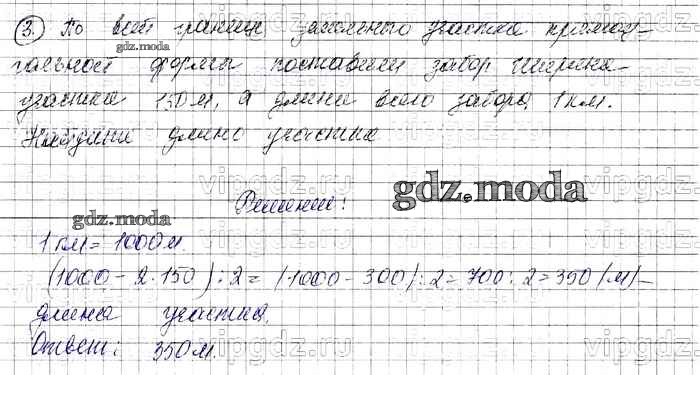 3. По всей границе земельного участка прямоу-
гольной формы поставили забор. Ширина
участка 150 м, а длина всего забора 1 км.
Найдите длину участка
Решение:
1 км = 1000 м.
(1000 - 2·150) : 2 = (1000 - 300) : 2 = 700 : 2 = 350 (м) -
длина участка.
Ответ: 350 м.
gdz.moda
gdz.moda
gdz.moda
vipgdz.ru